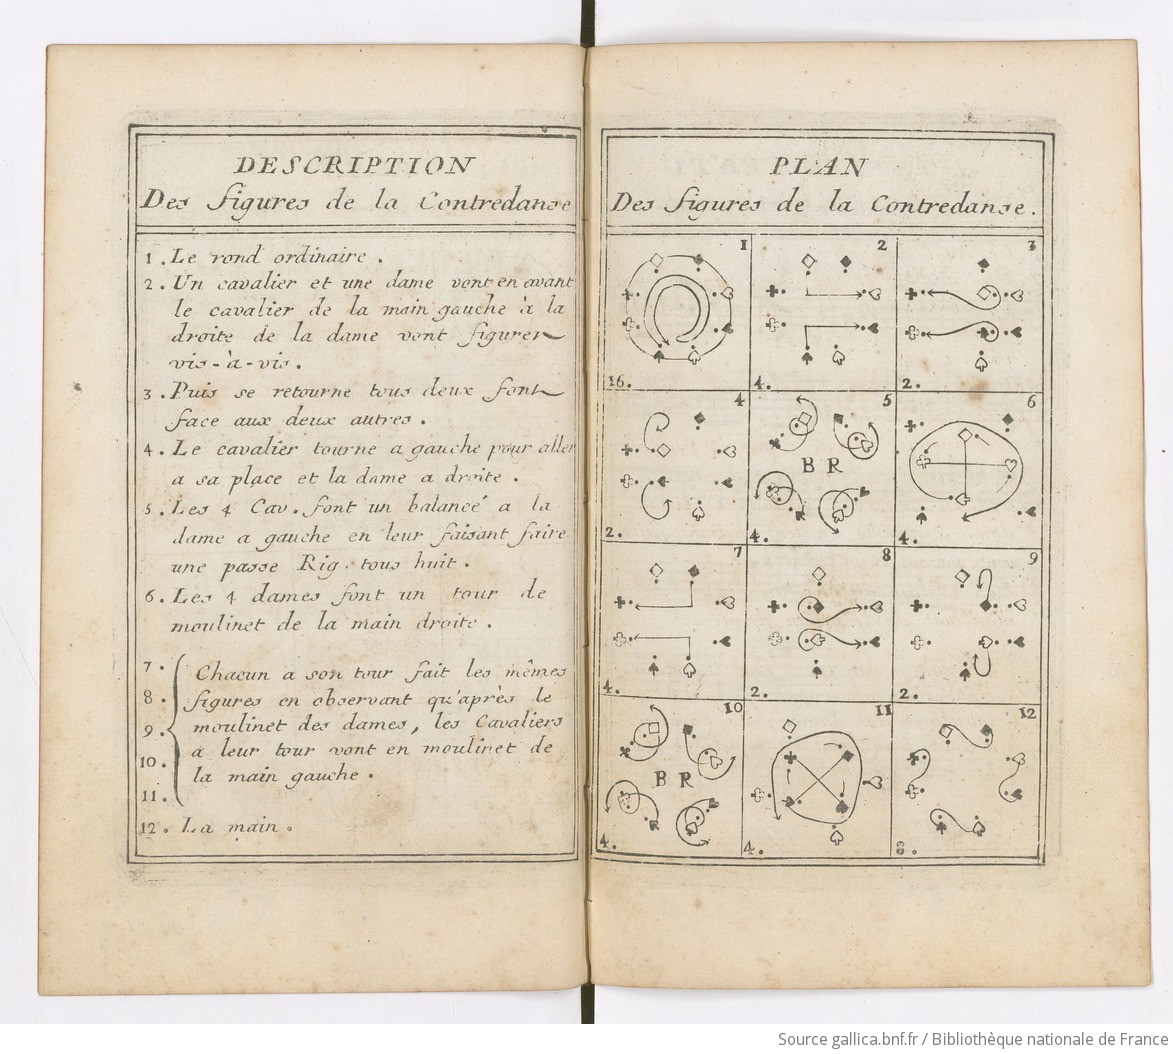 DESCRIPTION
Des figures de la Contredanse
1. Le rond ordinaire.
2. Un cavalier et une dame vont en avant
le cavalier de la main gauche à la
droite de la dame vont figurer
vis-à-vis.
3. Puis se retourne tous deux font
face aux deux autres.
4. Le cavalier tourne a gauche pour aller
a sa place et la dame a droite.
5. Les 4 Cav. font un balancé a la
dame a gauche en leur faisant faire
une passe Rig. tous huit.
6. Les 4 dames font un tour de
moulinet de la main droite.
7.
8.
9.
10.
11.
Chacun a son tour fait les mêmes
figures en observant qu'après le
moulinet des dames, les Cavaliers
a leur tour vont en moulinet de
la main gauche.
12. La main.
PLAN
Des figures de la Contredanse.
1 2 3
16. 4. 2.
4 5 6
B R
2. 4. 4.
7 8 9
4. 2. 2.
10 11 12
B R
4. 4. 8.
Source gallica.bnf.fr / Bibliothèque nationale de France